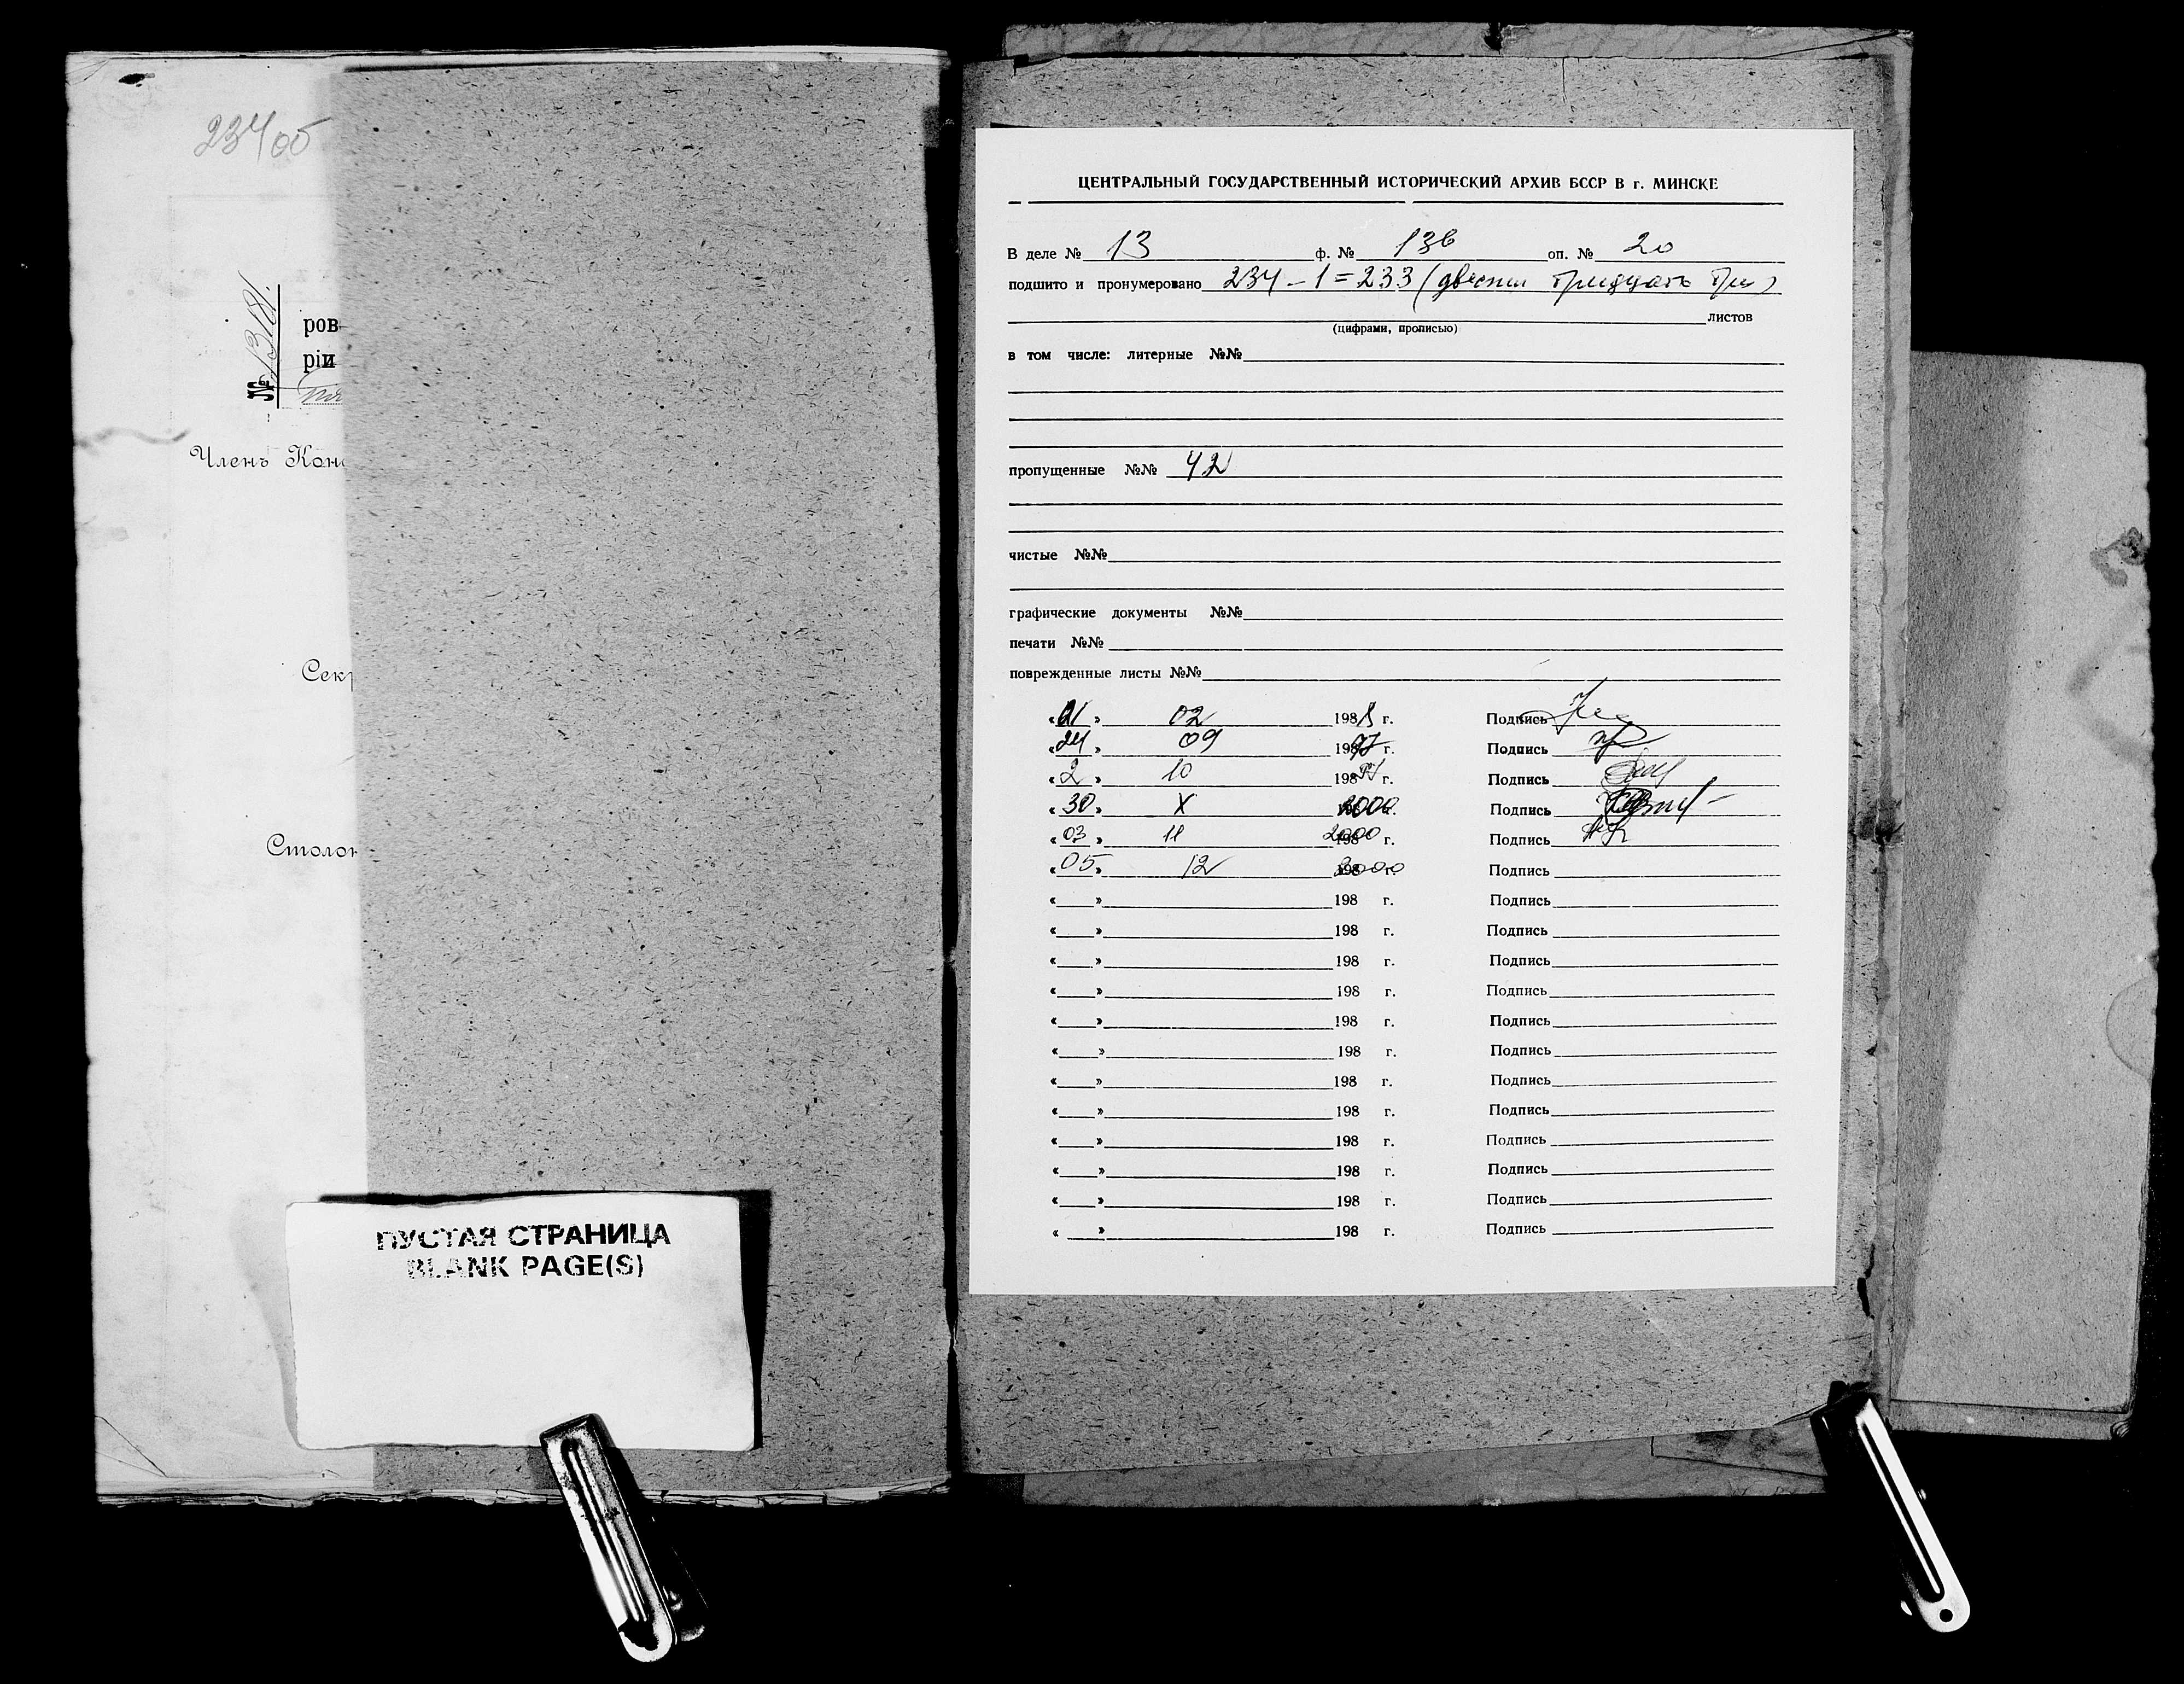 234об
№ 13181.
ров
ріи
Членъ Конс
Секр
Столон
ПУСТАЯ СТРАНИЦА
BLANK PAGE(S)
ЦЕНТРАЛЬНЫЙ ГОСУДАРСТВЕННЫЙ ИСТОРИЧЕСКИЙ АРХИВ БССР В г. МИНСКЕ
В деле № 13 ф. № 136 оп. № 20
подшито и пронумеровано 234-1=233 (двести тридцать три)
листов
(цифрами, прописью)
в том числе: литерные №№
пропущенные №№ 42
чистые №№
графические документы №№
печати №№
поврежденные листы №№
«01» 02 1988 г. Подпись
«24» 09 1997 г. Подпись
«2» 10 1997 г. Подпись
«30» X 2000 г. Подпись
«03» 11 2000 г. Подпись
«05» 12 2000 г. Подпись
« » 198 г. Подпись
« » 198 г. Подпись
« » 198 г. Подпись
« » 198 г. Подпись
« » 198 г. Подпись
« » 198 г. Подпись
« » 198 г. Подпись
« » 198 г. Подпись
« » 198 г. Подпись
« » 198 г. Подпись
« » 198 г. Подпись
« » 198 г. Подпись